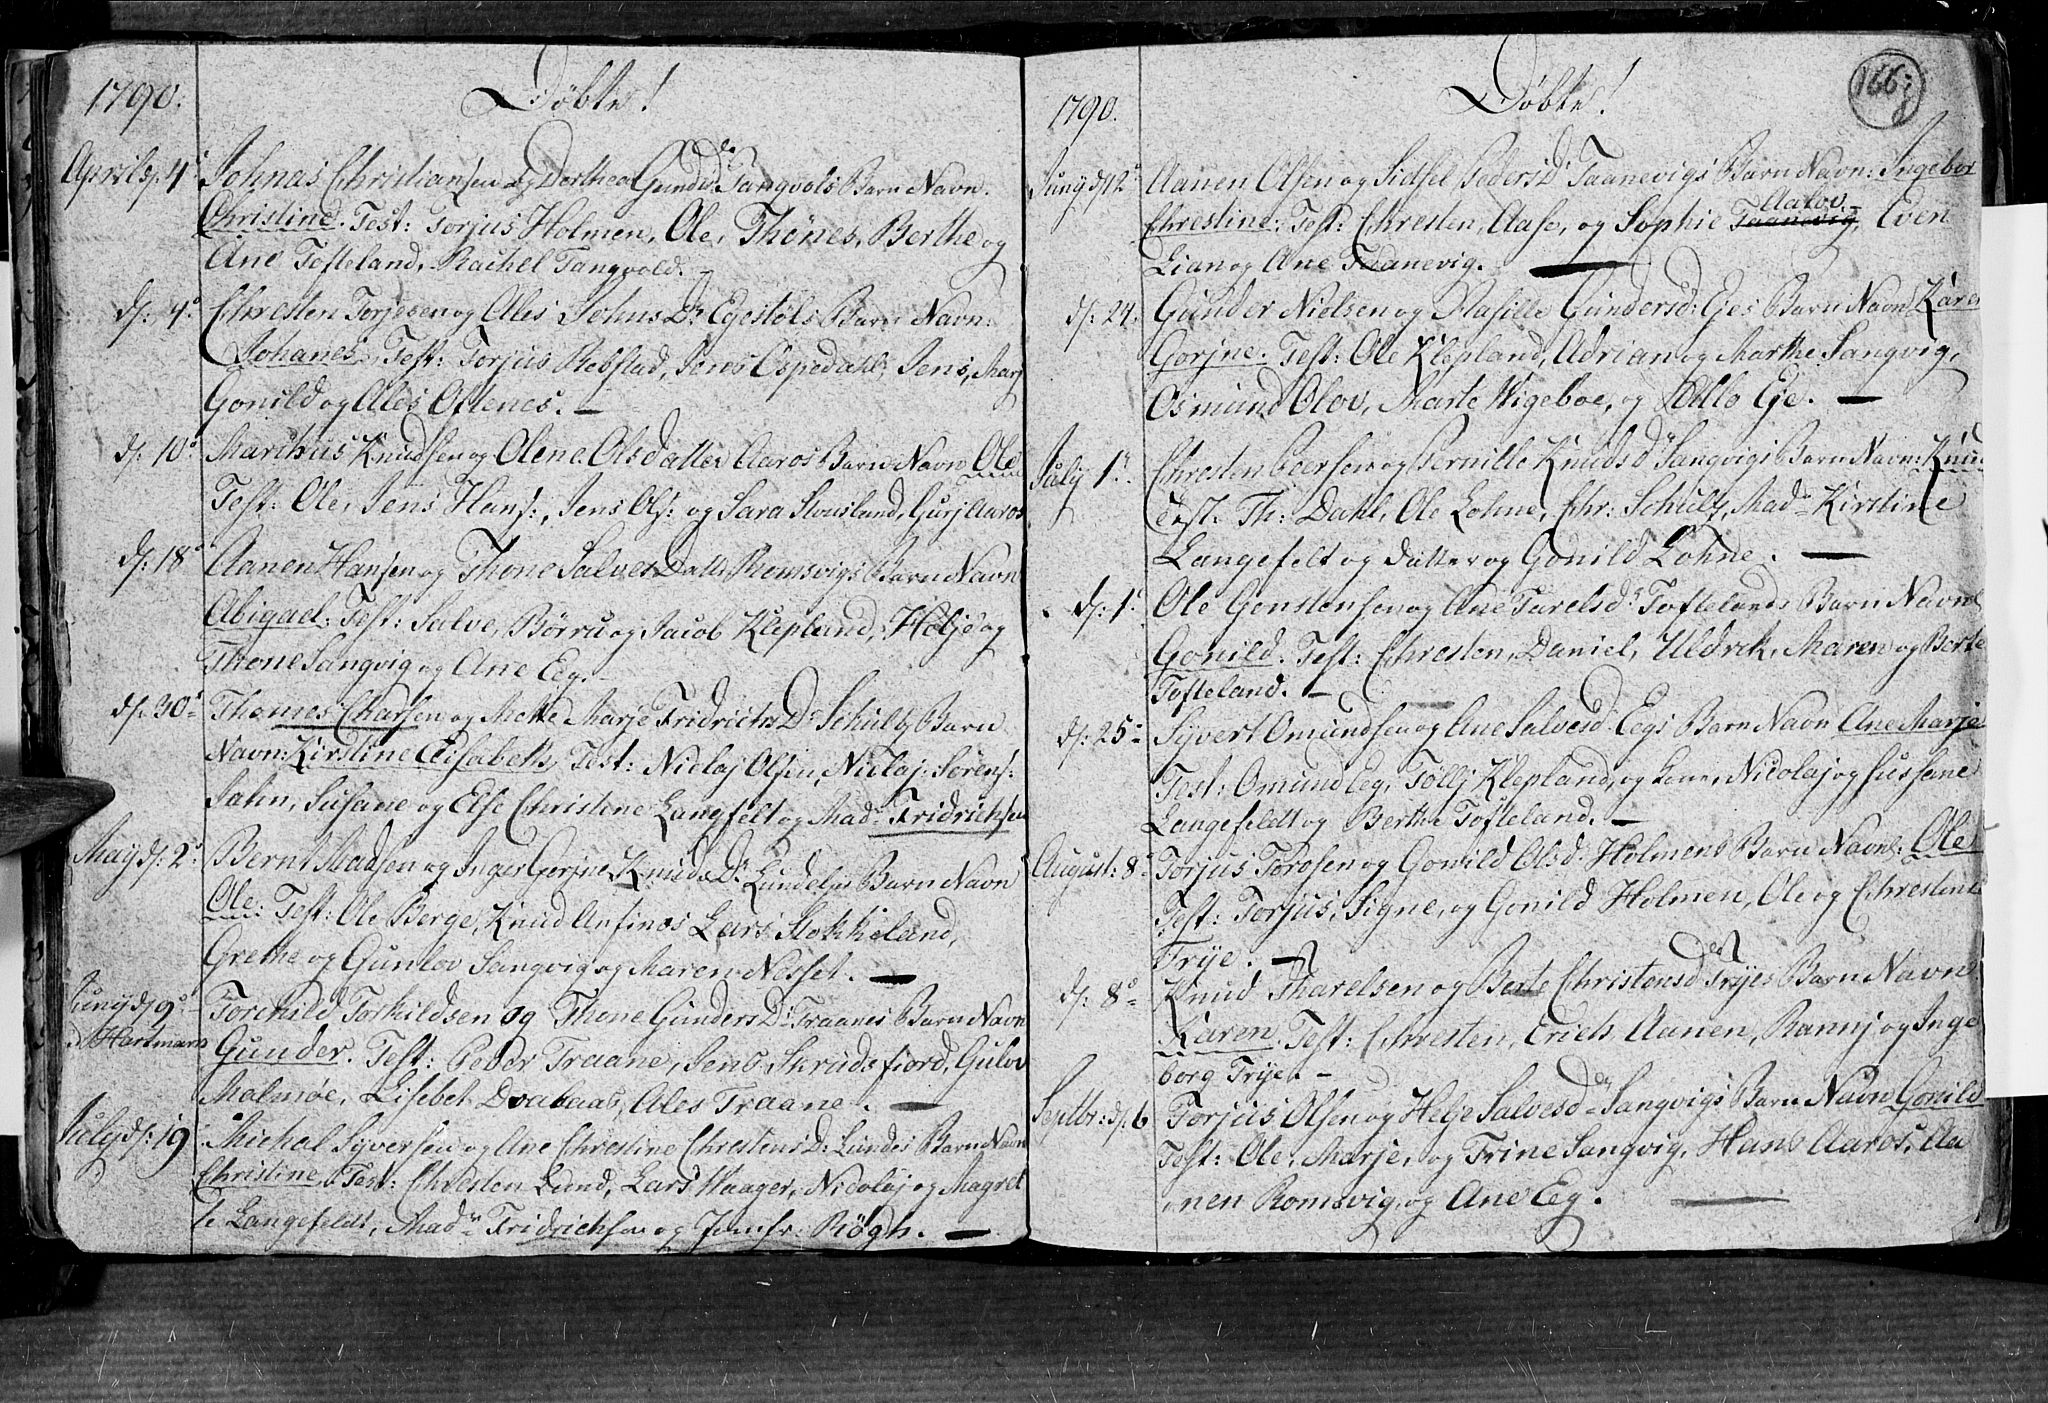 1790.
Döbte!
April d: 4de Johnas Christiansen og Dorthea Gunders Dr Tangvols Barn Navn.
Christine. Test: Torjus Holmen, Ole, Thönes, Berthe og
Ane Tofteland, Rachel Tangvold. –
d: 4de Chresten Torjesen og Ales Johns Dr Egestöls Barn Navn:
Johanes. Test: Torjus Rebstad, Jens Ospedahl, Jens, Marj
Gonild og Ales Oftenes. –
d: 10de Marthus Knudsen og Olene Olsdatter Aaros Barn Navn Ole
Test: Ole, Jens Hans:, Jens Ols: og Sara Stousland, Gurj Aaros
d: 18de Aanen Hansen og Thone Salves Datter Romsvigs Barn Navn
Abigael. Test: Salve, Börru og Jacob Klepland, Helje og
Thone Sangvig og Ane Eeg. –
d: 30te Thomes Charsen og Mette Marje Fridrichs Dr Schultz Barn
Navn: Kirstine Elisabeth, Test: Niclaj Olsen, Niclaj Sörens:
Sahn, Susane og Else Christine Langfelt og Mad: Fridrichsen
May d: 2de Bernt Madsen og Inger Gorjne Knuds Dr Lundeljs Barn Navn
Ole: Test: Ole Berge, Knud Anfinøs Lars Stokkeland,
Grethe og Gunlov Sangvig og Maren Nesset. –
Juny d: 9de Torchild Torkildsen og Thone Gunders Dr Traanes Barn Navn
d. Hartmarn Gunder. Test: Peder Traane, Jens Skrudsfiord, Gulov
Malmøe, Lisebet Drabaas, Ales Traane. –
July d: 19 Michal Syversen og Ane Chrestine Chrestens D: Lundes Barn Navn
Christine, Test: Chresten Lund, Lars Haager, Nicolaj og Magret
te Langefeldt, Mad: Fridrichsen og Jomfr: Rögh. –
166
8
1790.
Döbte!
Juny d: 12te Aanen Olsen og Sidsel Pedersd Taanevigs Barn Navn: Ingebor
Chrestine: Test: Chresten, Aase, og Sophie Taanevig, Aalov Even
Lian og Ane Taanevig. –
d: 24. Gunder Nielsen og Asille Gundersd: Ejes Barn Navn Karen
Gorjne. Test: Ole Klepland, Adrian og Marthe Sangvig,
Osmund Olov, Marte Wigeboe, og Adlo Eje. –
July 1te. Chresten Peersen og Pernille Knudsd Sangvigs Barn Navn: Knu:
Test. Th: Dahl, Ole Lohne, Chr: Schultz, Mad: Kirstine
Langefelt og Datter og Gonild Lohne. –
d: 1te Ole Gonstensen og Ane Tarelsdr Toftelands Barn Navn
Gonild. Test: Chresten, Daniel, Uldrek, Maren og Berte
Tofteland. –
d: 25te Syvert Omundsen og Ane Salvesd: Eegs Barn Navn Ane Marje
Test: Omund Eeg, Töllj Klepland, og Lene, Nicolaj og Susane
Langefeldt og Berthe Tofteland. –
August: 8de Torjus Torosen og Gonild Olsd: Holmens Barn Navn: Ole
Test: Torjus, Signe, og Gonild Holmen, Ole og Chrestine
Trye. –
d: 8de Knud Tharelsen og Berte Christensdr Tryes Barn Navn
Karen. Test: Chresten, Erich, Aanen, Rannj og Inge
borg Trye. –
Septbr: d: 6 Torjus Olsen og Helje Salvesdr Sangvigs Barn Navn Gonild
Test: Ole, Marje, og Trine Sangvig, Hans Aaros, Aa
nen Romsvig, og Ane Eeg. –